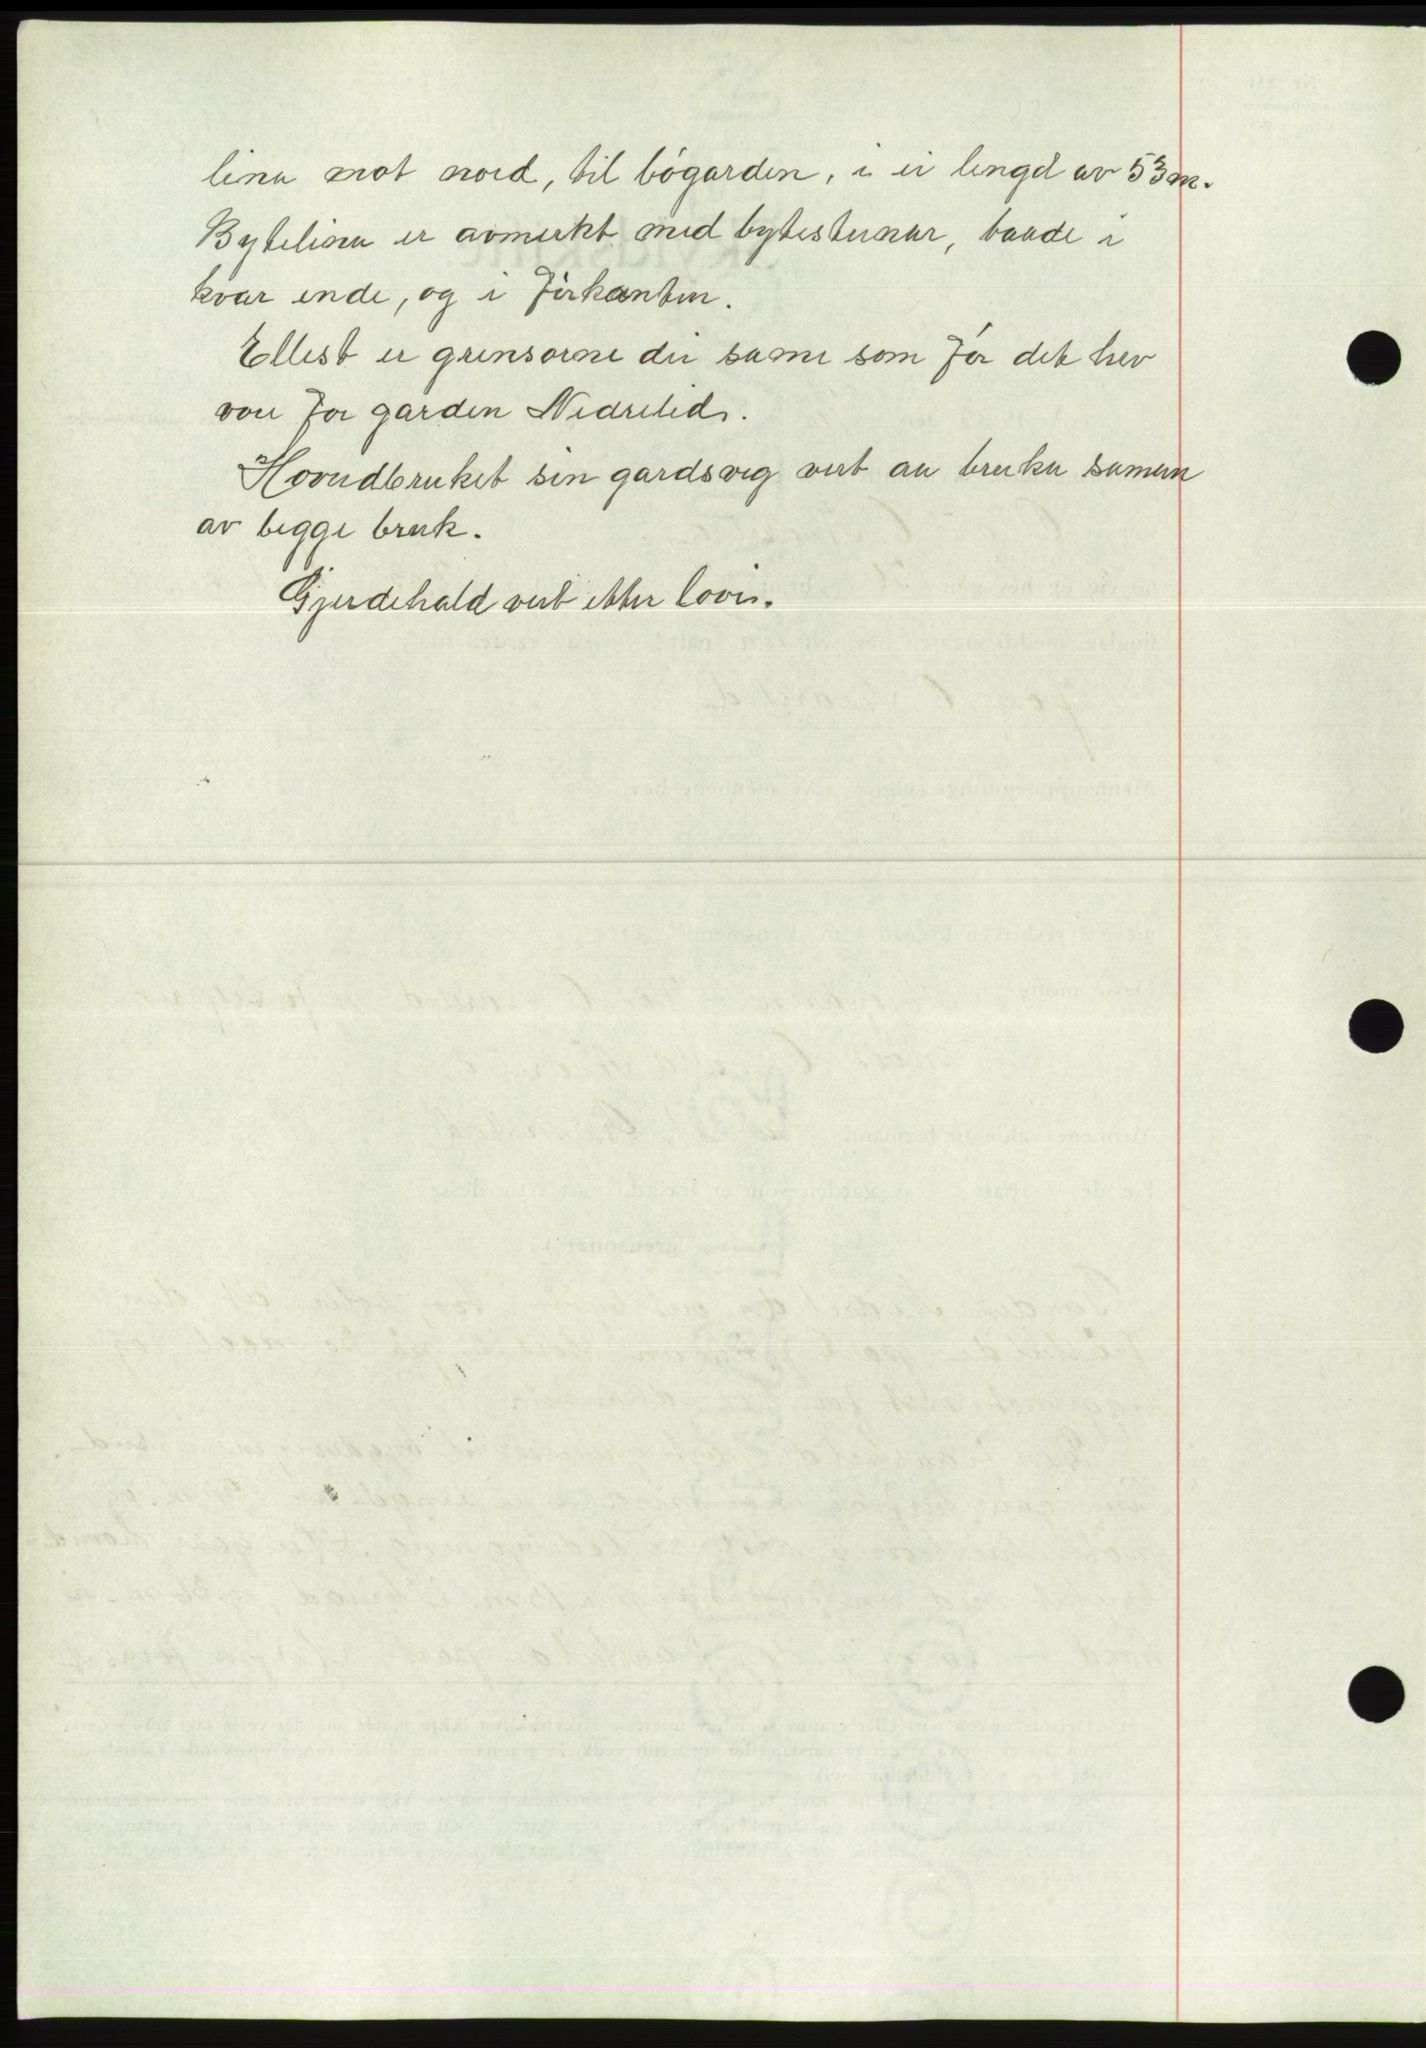 lina mot nord, til bøgarden, i ei lengd av 53m.
Bytelina er avmerkt med bytesteinar, baade i
kvar ende, og i firkanten.
Ellest er grensorne dei same som før det hev
vore for garden Nedrelid.
Hovudbruket sin gardsveg vert au bruka saman
av begge bruk.
Gjerdehald vert etter lovis.